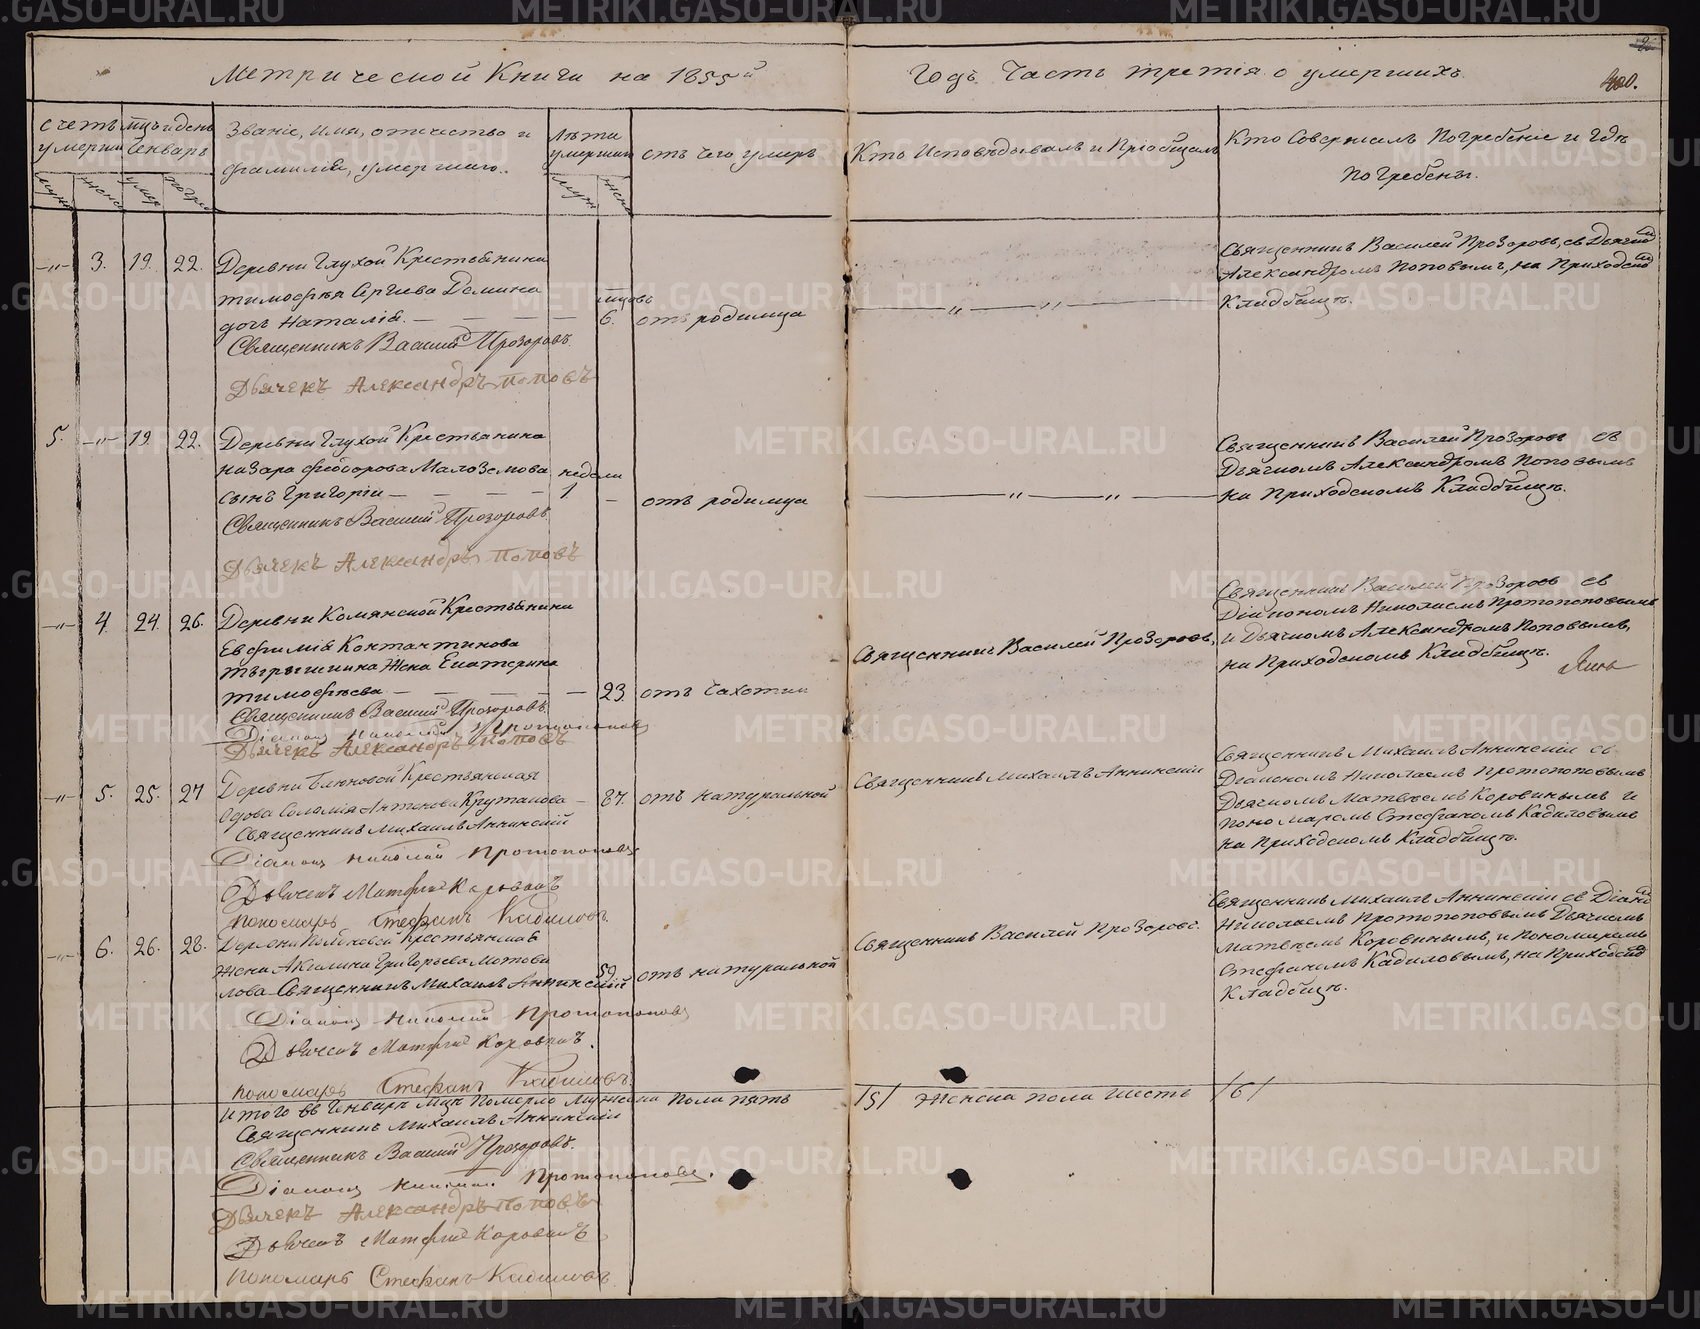 Метрической Книги на 1855й
Годъ Часть третія о умершихъ.
400.
Счетъ умерших
Мцъ и день Генварь
Званіе, имя, отчество и
фамилія, умершаго.
Лѣта умершаго
отъ чего умеръ
Кто Исповѣдывалъ и Пріобщалъ
Кто Совершалъ Погребеніе и Гдѣ
Погребены.
муж
женс
умер
погре
муж
женс
—"— 3. 19. 22. Деревни Глухой Крестьянина
Тимофѣя Сргіева Демина
дочь Наталія. — — — — мцовъ 6. отъ родимца
—"— —"—
Священникъ Василей Прозоровъ, съ Дьячко
Александромъ Поповымъ, на Приходско
Кладбищѣ.
Священникъ Василий Прозоровъ
Дьячекъ Александръ Поповъ
5. —"— 19 22. Деревни Глухой Крестьянина
Назара Феодорова Малоземова
сынъ Григорій — — — — недели 1 — отъ родимца
—"— —"—
Священникъ Василей Прозоровъ съ
Дьячкомъ Александромъ Поповымъ
на Приходскомъ Кладбищѣ.
Священникъ Василий Прозоровъ
Дьячекъ Александръ Поповъ
—"— 4. 24. 26. Деревни Комянской Крестьянина
Евфимія Контантинова
жена Екатерина
Тимофѣева — — — — — 23. отъ Чахотки
Священникъ Василей Прозоровъ,
Священникъ Василей Прозоровъ съ
Діакономъ Николаемъ Протопоповымъ
и Дьячкомъ Александромъ Поповымъ,
на Приходскомъ Кладбищѣ.
Священникъ Василий Прозоровъ
Діаконъ Николай Протопоповъ
Дьячекъ Александръ Поповъ
—"— 5. 25. 27 Деревни Крестьянская
вдова Соломія Антонова Крутакова — 87. отъ натуральной
Священникъ Михаилъ Аннинскій
Священникъ Михаилъ Аннинскій съ
Діакономъ Николаемъ Протопоповымъ
Дьячкомъ Матвѣемъ Коровинымъ и
Пономаремъ Стефаномъ Кадиловымъ
на Приходскомъ Кладбищѣ.
Священникъ Михаилъ Аннинскій
Діаконъ Николай Протопоповъ
Дьячекъ Матфій Коровинъ
Пономарь Стефанъ Кадиловъ
—"— 6. 26. 28. Деревни Крестьянская
жена Акилина Григорьева Мотова
лова 59. отъ натуральной
Священникъ Василей Прозоровъ.
Священникъ Михаилъ Аннинскій съ Діако
Николаемъ Протопоповымъ Дьячкомъ
Матвѣемъ Коровинымъ, и Пономаремъ
Стефаномъ Кадиловымъ, на Приходско
Кладбищѣ.
Священникъ Михаилъ Аннинский
Діаконъ Николай Протопоповъ
Дьячекъ Матфій Коровинъ.
Пономарь Стефанъ Кадиловъ.
Итого въ Генварѣ Мцѣ Померло Мужеска Пола пять /5/ Женска пола шесть /6/
Священникъ Михаилъ Аннинскій
Священникъ Василий Прозоровъ.
Діаконъ Николай Протопоповъ.
Дьячекъ Александръ Поповъ
Дьячекъ Матфій Коровинъ
Пономарь Стефанъ Кадиловъ
METRIKI.GASO-URAL.RU